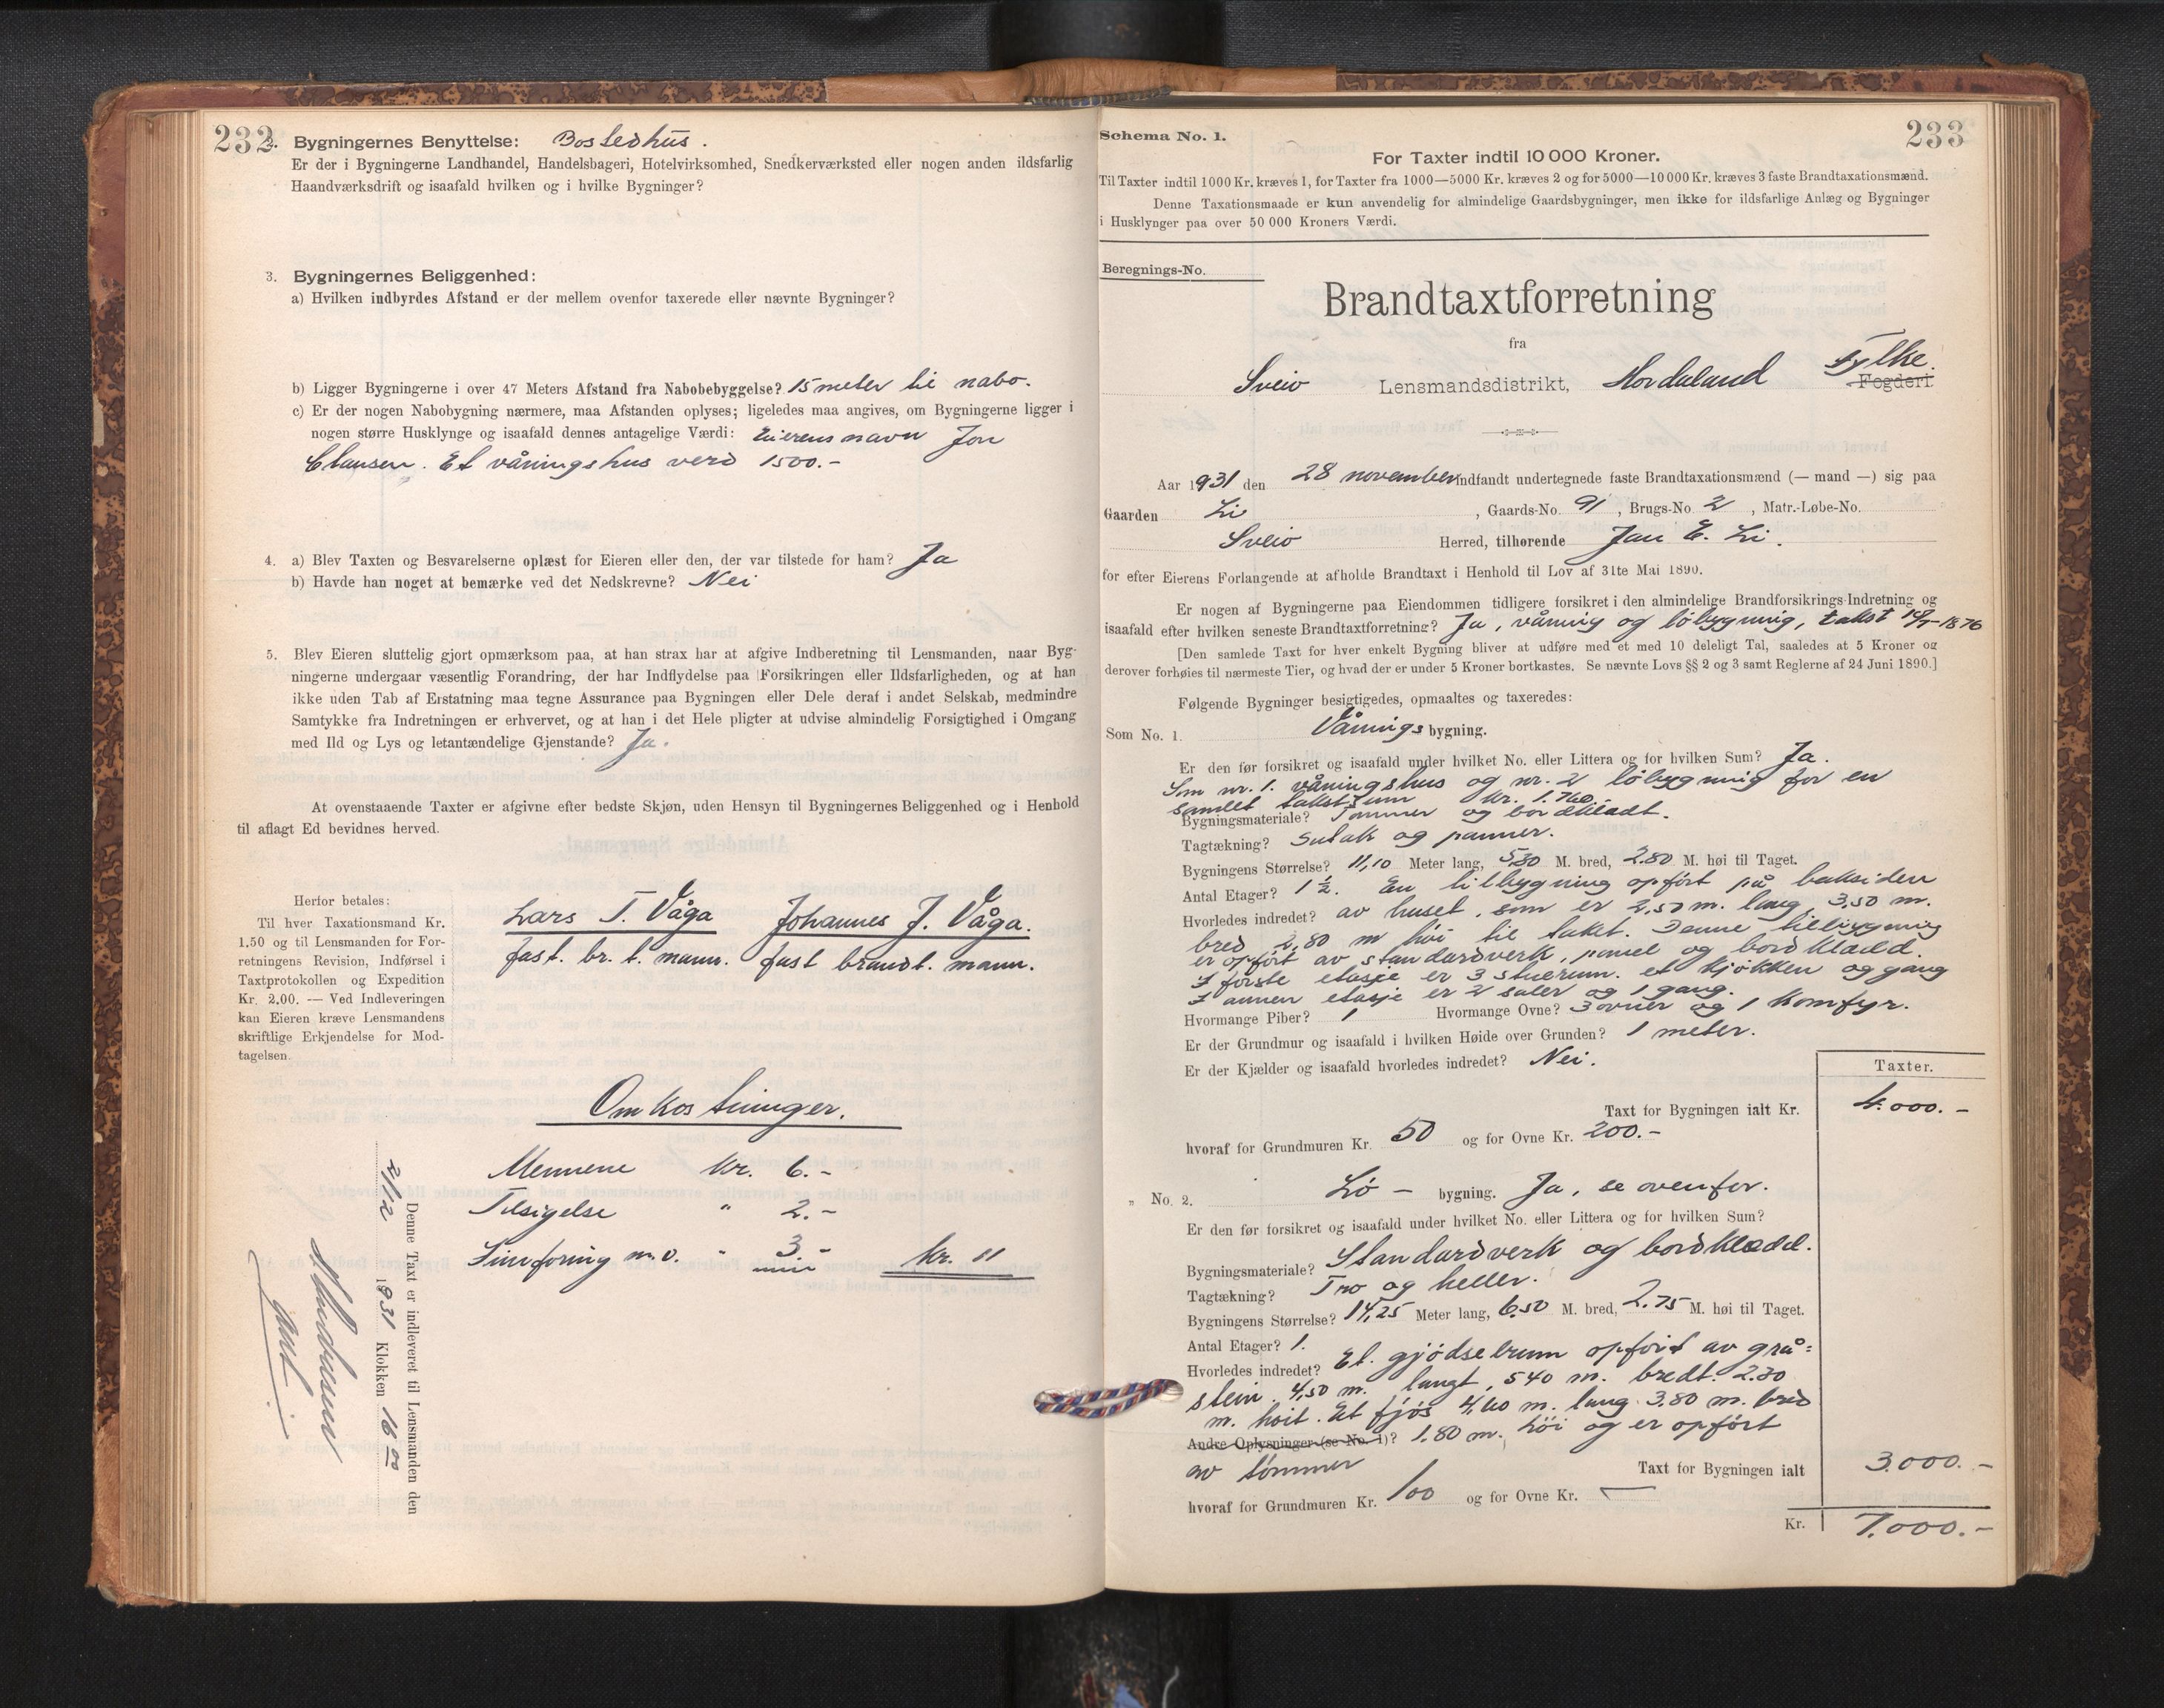 232
2. Bygningernes Benyttelse: Bostedhus.
Er der i Bygningerne Landhandel, Handelsbageri, Hotelvirksomhed, Snedkerværksted eller nogen anden ildsfarlig
Haandværksdrift og isaafald hvilken og i hvilke Bygninger?
3. Bygningernes Beliggenhed:
a) Hvilken indbyrdes Afstand er der mellem ovenfor taxerede eller nævnte Bygninger?
b) Ligger Bygningerne i over 47 Meters Afstand fra Nabobebyggelse? 15 meter til nabo.
c) Er der nogen Nabobygning nærmere, maa Afstanden oplyses; ligeledes maa angives, om Bygningerne ligger i
nogen større Husklynge og isaafald dennes antagelige Værdi: Eierens navn Jon
Clausen. Et våningshus verd 1500.-
4. a) Blev Taxten og Besvarelserne oplæst for Eieren eller den, der var tilstede for ham? Ja
b) Havde han noget at bemærke ved det Nedskrevne? Nei
5. Blev Eieren sluttelig gjort opmærksom paa, at han strax har at afgive Indberetning til Lensmanden, naar Byg-
ningerne undergaar væsentlig Forandring, der har Indflydelse paa Forsikringen eller Ildsfarligheden, og at han
ikke uden Tab af Erstatning maa tegne Assurance paa Bygningen eller Dele deraf i andet Selskab, medmindre
Samtykke fra Indretningen er erhvervet, og at han i det Hele pligter at udvise almindelig Forsigtighed i Omgang
med Ild og Lys og letantændelige Gjenstande? Ja.
At ovenstaaende Taxter er afgivne efter bedste Skjøn, uden Hensyn til Bygningernes Beliggenhed og i Henhold
til aflagt Ed bevidnes herved.
Herfor betales:
Til hver Taxationsmand Kr.
1.50 og til Lensmanden for For-
retningens Revision, Indførsel i
Taxtprotokollen og Expedition
Kr. 2.00. — Ved Indleveringen
kan Eieren kræve Lensmandens
skriftlige Erkjendelse for Mod-
tagelsen.
Lars T. Våga Johannes J. Våga.
fast. br. t. mann. fast brandt. mann.
Omkostninger.
Mennene Kr. 6.-
Tilsigelse " 2.-
Innføring m.v. " 3.- Kr. 11
Denne Taxt er indleveret til Lensmanden den
2/12 1931 Klokken 16 00
233
Schema No. 1.
For Taxter indtil 10 000 Kroner.
Til Taxter indtil 1000 Kr. kræves 1, for Taxter fra 1000—5000 Kr. kræves 2 og for 5000—10 000 Kr. kræves 3 faste Brandtaxationsmænd.
Denne Taxationsmaade er kun anvendelig for almindelige Gaardsbygninger, men ikke for ildsfarlige Anlæg og Bygninger
i Husklynger paa over 50 000 Kroners Værdi.
Beregnings-No.
Brandtaxtforretning
fra
Sveio Lensmandsdistrikt, Hordaland Fylke. Fogderi.
Aar 1931 den 28 november indfandt undertegnede faste Brandtaxationsmænd (— mand —) sig paa
Gaarden Li , Gaards-No. 91 , Brugs-No. 2 , Matr.-Løbe-No.
Sveio Herred, tilhørende Jan E. Li.
for efter Eierens Forlangende at afholde Brandtaxt i Henhold til Lov af 31te Mai 1890.
Er nogen af Bygningerne paa Eiendommen tidligere forsikret i den almindelige Brandforsikrings-Indretning og
isaafald efter hvilken seneste Brandtaxtforretning? Ja, våning og løbygning, takst 1876
[Den samlede Taxt for hver enkelt Bygning bliver at udføre med et med 10 deleligt Tal, saaledes at 5 Kroner og
derover forhøies til nærmeste Tier, og hvad der er under 5 Kroner bortkastes. Se nævnte Lovs §§ 2 og 3 samt Reglerne af 24 Juni 1890.]
Følgende Bygninger besigtigedes, opmaaltes og taxeredes:
Som No. 1. Vånings bygning.
Er den før forsikret og isaafald under hvilket No. eller Littera og for hvilken Sum? Ja.
Som nr. 1. våningshus og nr. 2 løbygning for en
samlet takstsum kr. 1.760.-
Bygningsmateriale? Tømmer og bordkledt.
Tagtækning? Sutak og panner.
Bygningens Størrelse? 11,10 Meter lang, 5,30 M. bred, 2.80 M. høi til Taget.
Antal Etager? 1 1/2. En tilbygning opført på baksiden
Hvorledes indredet? av huset, som er 2,50 m. lang, 3,50 m.
bred, 2,80 m høi til taket. Denne tilbygning
er opført av standardverk, panel og bordklædd.
I første etasje er 3 stuerum. et kjøkken og gang
I annen etasje er 2 saler og 1 gang.
Hvormange Piber? 1 Hvormange Ovne? 3 ovner og 1 komfyr.
Er der Grundmur og isaafald i hvilken Høide over Grunden? 1 meter.
Er der Kjælder og isaafald hvorledes indredet? Nei.
Taxter.
Taxt for Bygningen ialt Kr. 4.000.-
hvoraf for Grundmuren Kr. 50 og for Ovne Kr. 200.-
„ No. 2. Lø - bygning. Ja, se ovenfor.
Er den før forsikret og isaafald under hvilket No. eller Littera og for hvilken Sum?
Bygningsmateriale? Standardverk og bordklædd.
Tagtækning? Tro og heller.
Bygningens Størrelse? 14,25 Meter lang, 6,50 M. bred, 2.75 M. høi til Taget.
Antal Etager? 1.
Hvorledes indredet? Et. gjødselrum opført av grå=
stein. 4,50 m. langt, 540 m. bredt. 2.30
m. høit. Et fjøs 4,60 m. lang 3,80 m. bred
Andre Oplysninger (se No. 1)? 1.80 m. høi og er opført
av tømmer Taxt for Bygningen ialt 3.000.-
hvoraf for Grundmuren Kr. 100 og for Ovne Kr. —
Kr. 7.000.-